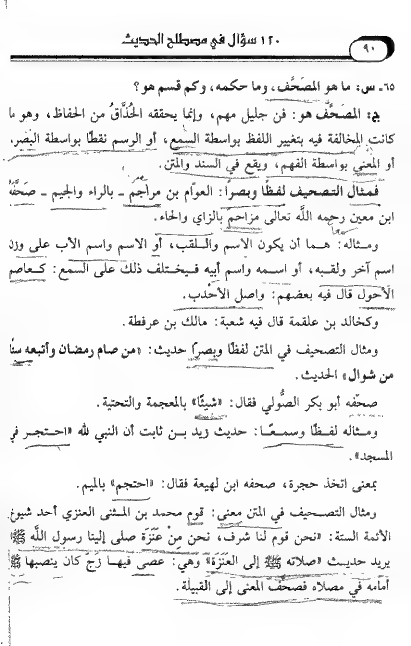 ١٢٠ سؤال في مصطلح الحديث
٩٠
٦٥- س: ما هو المصَحَّف، وما حكمه، وكم قسم هو؟
ج: المصَحَّف هو: فن جليل مهم، وإنما يحققه الحُذَّاقُ من الحفاظ، وهو ما
كانت المخالفة فيه بتغيير اللفظ بواسطة السمع، أو الرسم نقطًا بواسطة البَصَر،
أو المعنى بواسطة الفهم، ويقع في السند والمتن.
فمثال التصحيف لفظًا وبصرًا: العوام بن مراجم ـ بالراء والجيم ـ صَحَّفَهُ
ابن معين رحمه اللَّه تعالى مزاحم بالزاي والحاء.
ومثاله: هما أن يكون الاسم واللقب، أو الاسم واسم الأب على وزن
اسم آخر ولقبه، أو اسمه واسم أبيه فيختلف ذلك على السمع: كعاصم
الأحول قال فيه بعضهم: واصل الأحْدَب.
وكخالد بن علقمة قال فيه شعبة: مالك بن عرفطة.
ومثال التصحيف في المتن لفظًا وبصرًا حديث: «من صام رمضان وأتبعه ستًا
من شوال» الحديث.
صَحَّفه أبو بكر الصُّولي فقال: «شيئًا» بالمعجمة والتحتية.
ومثاله لفظًا وسمعًا: حديث زيد بن ثابت أن النبي لله «احتجر في
المسجد»
بمعنى اتخذ حجرة، صحفه ابن لهيعة فقال: «احتجم» بالميم.
ومثال التصحيف في المتن معنى: قوم محمد بن المثنى العنزي أحد شيوخ
الأئمة الستة: «نحن قوم لنا شرف، نحن مِنْ عَنَزَة صلى إلينا رسول اللَّه ﷺ
يريد حديث «صلاته ﷺ إلى العَنَزَة» وهي: عصى فيها زجّ كان ينصبها ﷺ
أمامه في مصلاه فصحَّف المعنى إلى القبيلة.